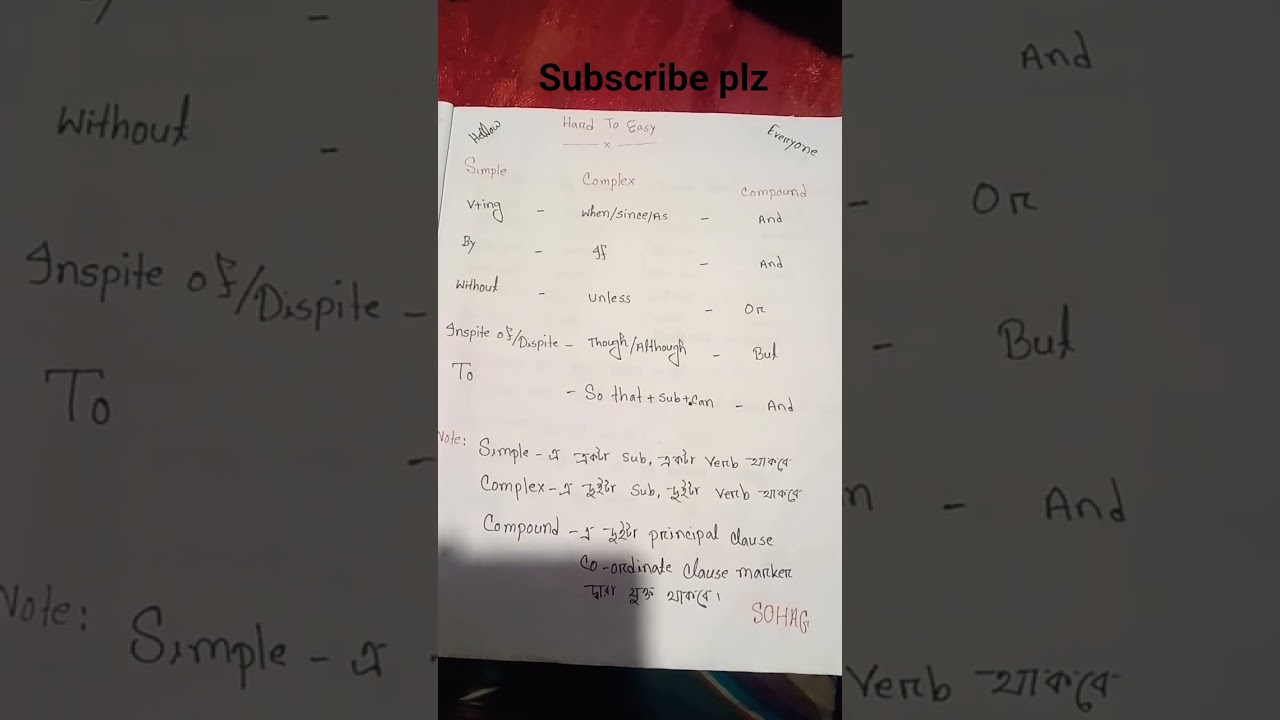 Subscribe plz
Hellow Hard To Easy Everyone
x
Simple Complex Compound
V+ing - When/Since/As - And
By - If - And
Without - Unless - Or
Inspite of/Dispite - Though/Although - But
To - So that + Sub+can - And
Note: Simple - এ একটা Sub, একটা Verb থাকবে
Complex - এ দুইটা Sub, দুইটা Verb থাকবে
Compound - এ দুইটা principal clause
Co-ordinate clause marker
দ্বারা যুক্ত থাকবে।
SOHAG